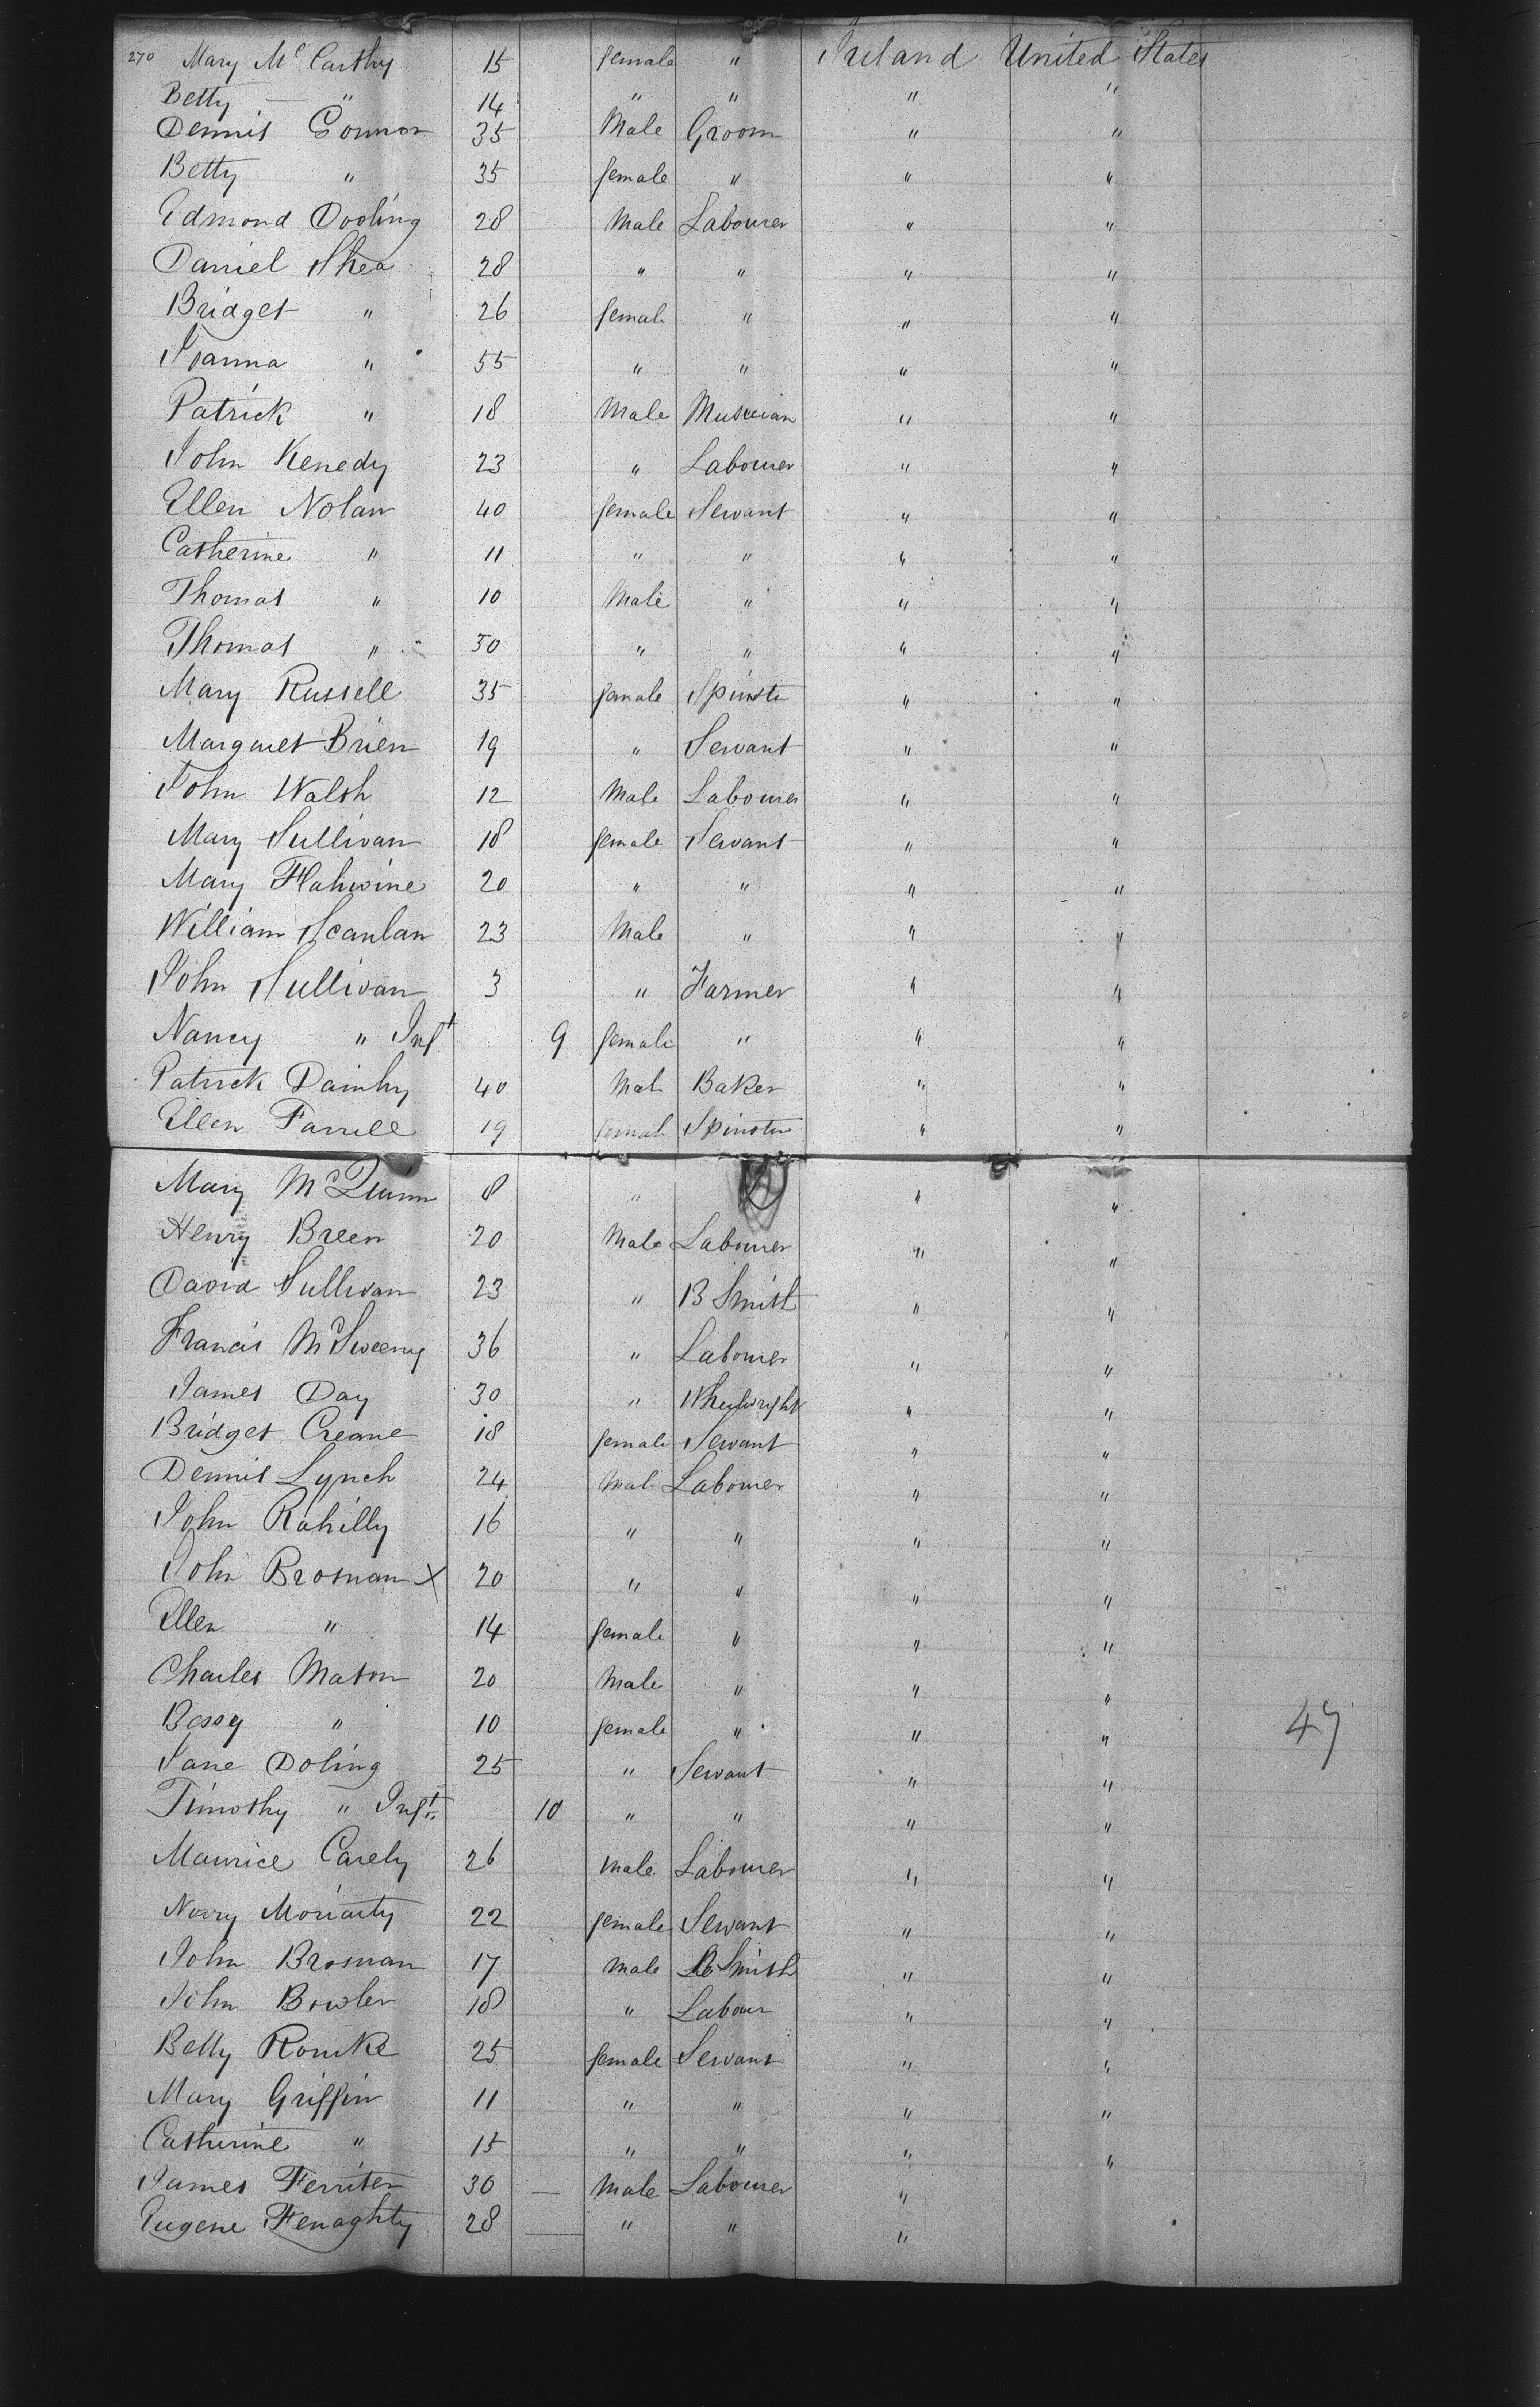 270 Mary Mc Carthy 15 female " Ireland United States
Betty — " 14 " " " "
Dennis Connor 35 Male Groom " "
Betty " 35 female " " "
Edmond Dooling 28 Male Labourer " "
Daniel Shea 28 " " " "
Bridget " 26 femal " " "
Joanna " 55 " " " "
Patrick " 18 Male Musician " "
John Kenedy 23 " Labourer " "
Ellen Nolan 40 female Servant " "
Catherine " 11 " " " "
Thomas " 10 Male " " "
Thomas " 50 " " " "
Mary Russell 35 female Spinstr " "
Margaret Brien 19 " Servant " "
John Walsh 12 Male Labourer " "
Mary Sullivan 18 female Servant " "
Mary Flahwine 20 " " " "
William Scanlan 23 Male " " "
John Sullivan 3 " Farmer " "
Nancy " Inft 9 female " " "
Patrick 40 Male Baker " "
Ellen Farrell 19 female Spinster " "
Mary McQuinn 8 " " "
Henry Breen 20 Male Labourer " "
David Sullivan 23 " B Smith " "
Francis McSweeny 36 " Labourer " "
James Day 30 " Wheelwright " "
Bridget Creane 18 female Servant " "
Dennis Lynch 24 Male Labourer " "
John Rahilly 16 " " " "
John Brosnan X 20 " " " "
Ellen " 14 female " " "
Charles Mason 20 Male " " "
Bessy " 10 female " " " 47
Jane Doling 25 " Servant " "
Timothy " Inft 10 " " " "
Maurice Carely 26 Male Labourer " "
Norry Moriarty 22 female Servant " "
John Brosnan 17 Male B Smith " "
John Bowler 18 " Labour " "
Betty Rourke 25 female Servant " "
Mary Griffin 11 " " " "
Catherine " 15 " " " "
James Ferriter 30 — Male Labourer "
Eugene Fenaghty 28 — " " "